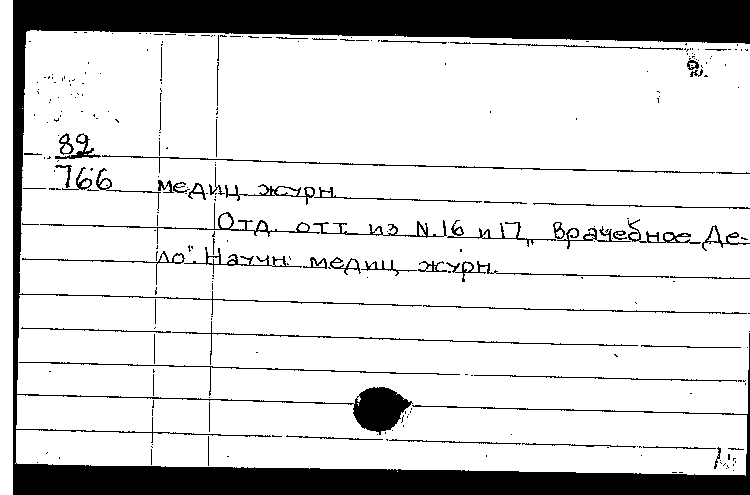 82
766 медиц журн.
Отд. отт. из N.16 и 17 „Врачебное Де-
ло". Научн. медиц журн.